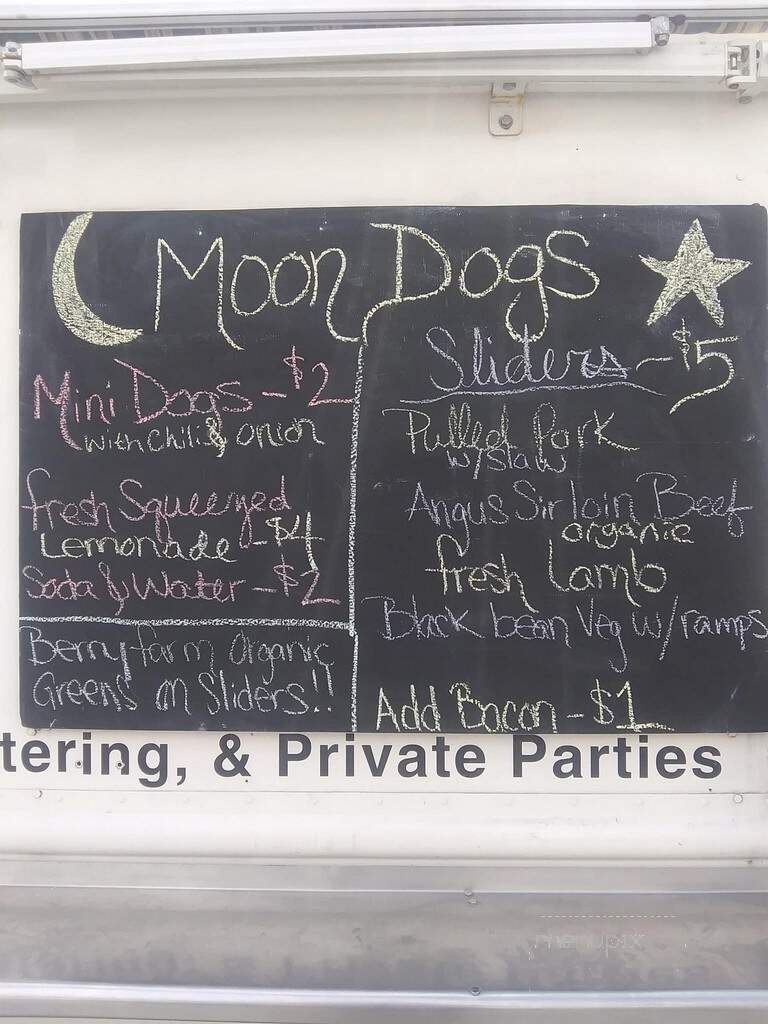 Moon Dogs
Mini Dogs - $2
with chili & onion
fresh Squeezed
Lemonade - $4
Soda & Water - $2
Berry farm organic
Greens on Sliders!!
Sliders - $5
Pulled Pork
w/slaw
Angus Sirloin Beef
organic
fresh lamb
Black bean Veg w/ramps
Add Bacon - $1
tering, & Private Parties
menupix